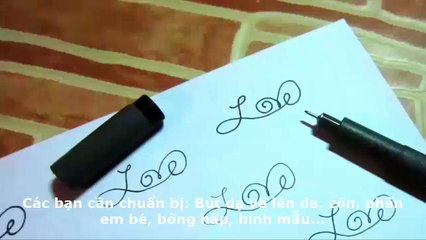 Love
Love
Love
Love
Các bạn cần chuẩn bị: Bút dạ vẽ lên da, cồn, phấn
em bé, bông hấp, hình mẫu..